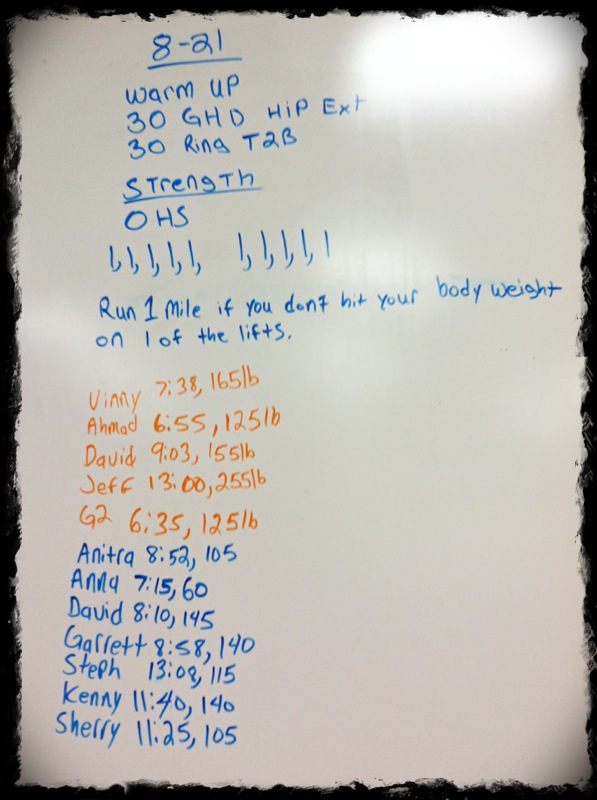 8-21
Warm UP
30 GHD HiP Ext
30 Ring T2B
STrengTh
OHS
1,1,1,1,1, 1,1,1,1,1
Run 1 Mile if you don't hit your body weight
on 1 of the lifts.
Vinny 7:38, 165lb
Ahmad 6:55, 125lb
David 9:03, 155lb
Jeff 13:00, 255lb
G2 6:35, 125lb
Anitra 8:52, 105
Anna 7:15, 60
David 8:10, 145
Garrett 8:58, 140
Steph 13:08, 115
Kenny 11:40, 140
Sherry 11:25, 105